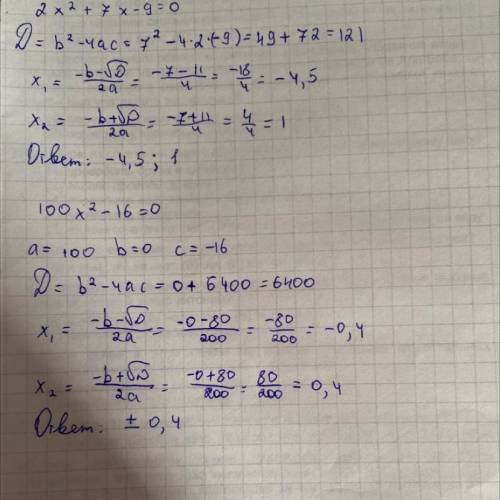 2x² + 7x - 9 = 0
D = b² - 4ac = 7² - 4·2·(-9) = 49 + 72 = 121
x₁ = (-b-√D)/2a = (-7-11)/4 = -18/4 = -4,5
x₂ = (-b+√D)/2a = (-7+11)/4 = 4/4 = 1
Ответ: -4,5; 1
100x² - 16 = 0
a = 100 b = 0 c = -16
D = b² - 4ac = 0 + 6400 = 6400
x₁ = (-b-√D)/2a = (-0-80)/200 = -80/200 = -0,4
x₂ = (-b+√D)/2a = (-0+80)/200 = 80/200 = 0,4
Ответ: ± 0,4